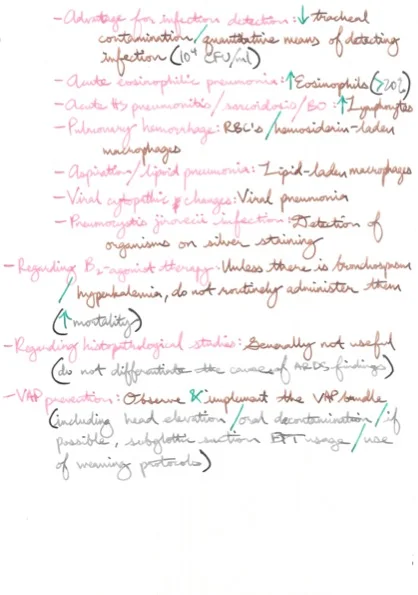 - Advantage for infection detection: ↓ tracheal
contamination / quantitative means of detecting
infection (10⁴ CFU/ml)
- Acute eosinophilic pneumonia: ↑ Eosinophils (>20%)
- Acute HS pneumonitis / sarcoidosis / BO: ↑ Lymphocytes
- Pulmonary hemorrhage: RBC's / hemosiderin-laden
macrophages
- Aspiration / lipoid pneumonia: Lipid-laden macrophages
- Viral cytopathic changes: Viral pneumonia
- Pneumocystis jirovecii infection: Detection of
organisms on silver staining
- Regarding B₂-agonist therapy: Unless there is bronchospasm
/ hyperkalemia, do not routinely administer them
(↑ mortality)
- Regarding histopathological studies: Generally not useful
(do not differentiate the cause of ARDS findings)
- VAP prevention: Observe & implement the VAP bundle
(including head elevation / oral decontamination / if
possible, subglottic suction ETT usage / use
of weaning protocols)